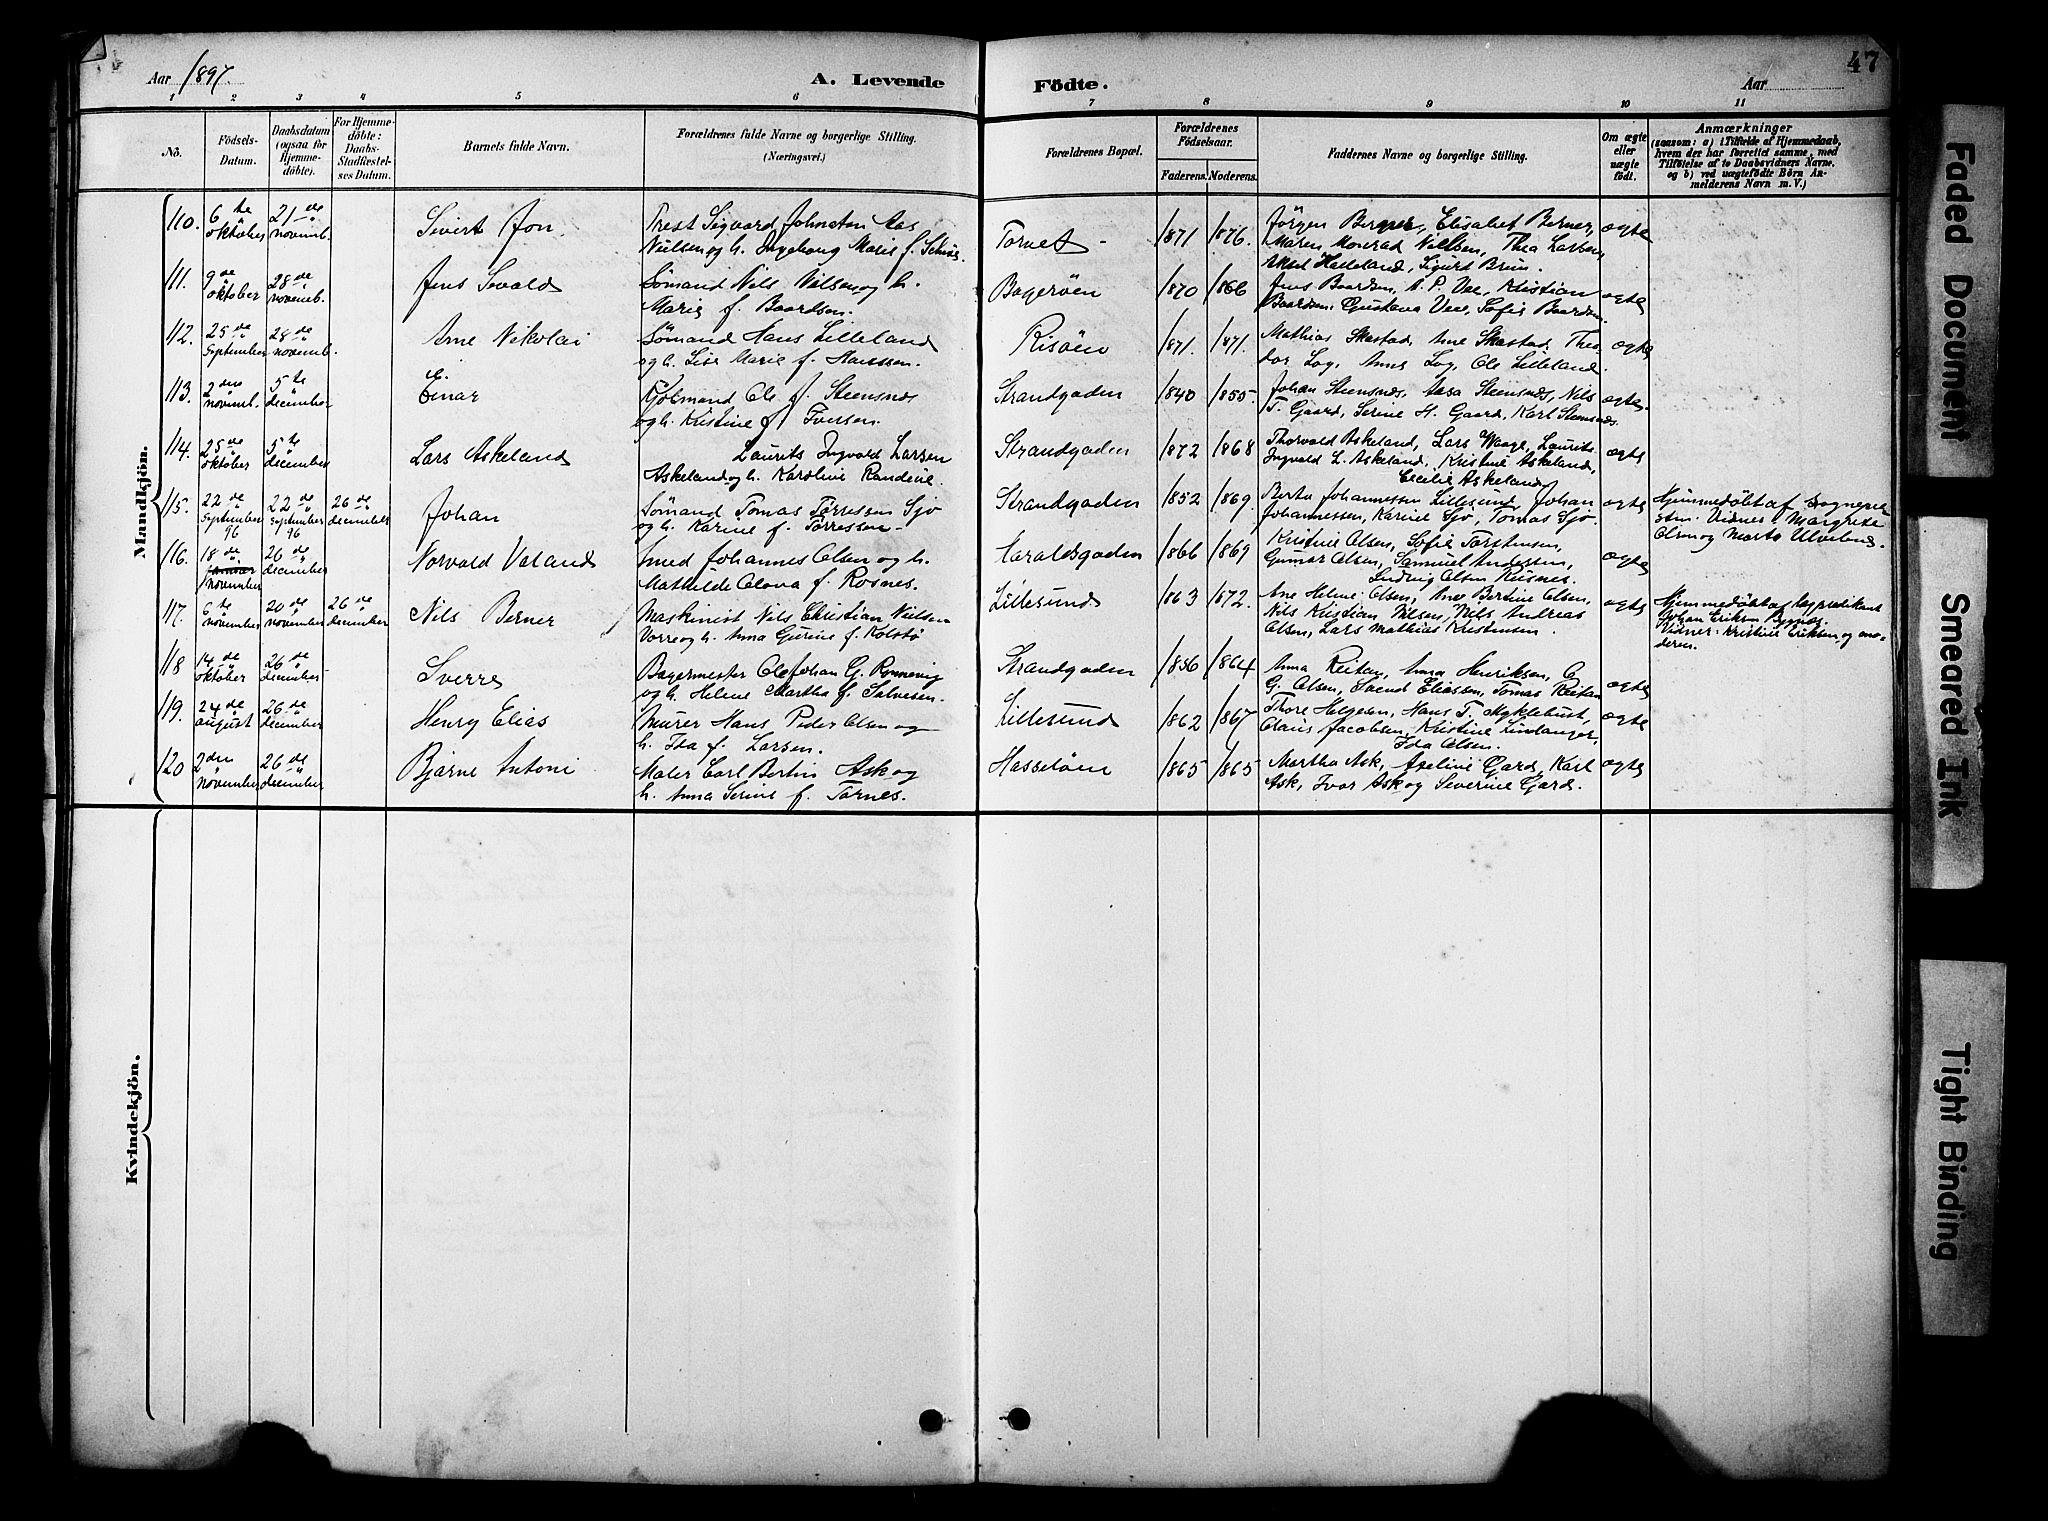 Aar 1897.
A. Levende
Födte.
Aar
47
1 2 3 4 5 6 7 8 9 10 11
No.
Födsels-
Datum.
Daabsdatum
(ogsaa for
Hjemme-
döbte).
For Hjemme-
döbte:
Daabs-
Stadfæstel-
ses Datum.
Barnets fulde Navn.
Forældrenes fulde Navne og borgerlige Stilling.
(Næringsvei.)
Forældrenes Bopæl.
Forældrenes
Födselsaar.
Faderens. Moderens.
Faddernes Navne og borgerlige Stilling.
Om ægte
eller
uægte
födt.
Anmærkninger
(saasom: a) i Tilfælde af Hjemmedaab,
hvem der har forrettet samme, med
Tilföielse af to Daabsvidners Navne.
og b) ved uægtefödte Börn An-
melderens Navn m. V.)
Mandkjön.
110. 6te oktober 21de novemb. Sivert Jon Prest Sigvard Johnsten Aas
Nielsen og h. Ingeborg Marie f. Torvet 1871 1876.
Jörgen Berner, Elisabet Berner,
Maren Monrad Nielsen, Thea Larsen,
Aksel Helleland, Sigurd Brun. ægte
111. 9de oktober 28de novemb. Jens Sevald Sømand Nils Nilsen og h.
Marie f. Baardsen. Bagerøen 1870 1866
Jens Baardsen, A. P. Vee, Kristian
Baardsen, Gustava Vee, Sofie Baardsen. ægte
112. 25de September 28de novemb. Arne Nikolai Sømand Hans Lilleland
og h. Lise Marie f. Hanssen. Risøen 1871. 1871.
Mathias Skastad, Ane Skastad, Theo-
dor Log, Anne Log, Ole Lilleland. ægte
113. 2den novemb. 5te december Einar Ole f. Steensnes
og h. Kristine f. Iversen. Strandgaden 1840 1855.
Johan Steensnes, Aasa Steensnes, Nils
T. Gaard, Serine H. Gaard, Karl Steensnes. ægte
114. 25de oktober 5te december Lars Askeland Laurits Ingvald Larsen
Askeland og h. Karoline Randine. Strandgaden 1872 1868
Thorvald Askeland, Lars Waage, Laurits
Ingvald L. Askeland, Kristine Askeland,
Cecilie Askeland ægte
115. 22de September 96 22de September 96 26de december Johan Sømand Tomas Tørressen Sjo
og h. Karine f. Tørressen. Strandgaden 1852 1869.
Berta Johannessen Lillesund, Johan
Johannessen, Karine Sjø, Tomas Sjø. ægte
Hjemmedøbt af Sognepre-
sten. Vidner: Margrete
Olsen og Marta
116. 18de november 26de december Norvald Valand Smed Johannes Olsen og h.
Mathilde Olava f. Røsnes. Haraldsgaden 1866 1869
Kristine Olsen, Sofie Torstensen,
Gunnar Olsen, Samuel Andersen,
Ludvig Olsen ægte
117. 6te november 20de november 26de december Nils Berner Maskinist Nils Christian Nielsen
Vorre og h. Anna Gurine f. Kolstø Lillesund 1863 1872.
Ane Helene Olsen, Ane Bertine Olsen,
Nils Kristian Nilsen, Nils Andreas
Olsen, Lars Mathias Kristensen. ægte
Hjemmedøbt af lægprædikant
Johan Eriksen
Vidner: Kristine Eriksen og mo-
deren.
118 14de oktober 26de december Sverre Bagermester Ole Johan G. Rønnevig
og h. Helene Martha f. Salvesen. Strandgaden 1856 1864
Anna Reiten, Anna Henriksen, O
G. Olsen, Svend Eliassen, Tomas Reiten ægte
119. 24de august 26de december Henry Elias Murer Hans Peder Olsen og
h. Ida f. Larsen. Lillesund 1862 1867
Thore Helgesen, Hans T. Myklebust,
Claus Jacobsen, Kristine Lindanger,
Ida Olsen. ægte
120 2den november 26de december Bjarne Antoni Maler Carl Bertin Ask og
h. Anna Serine f. Tornes. Hasseløen 1865 1865
Martha Ask, Axeline Gjard, Karl
Ask, Ivar Ask og Severine Gjard. ægte
Kvindekjön.
Faded Document
Smeared Ink
Tight Binding